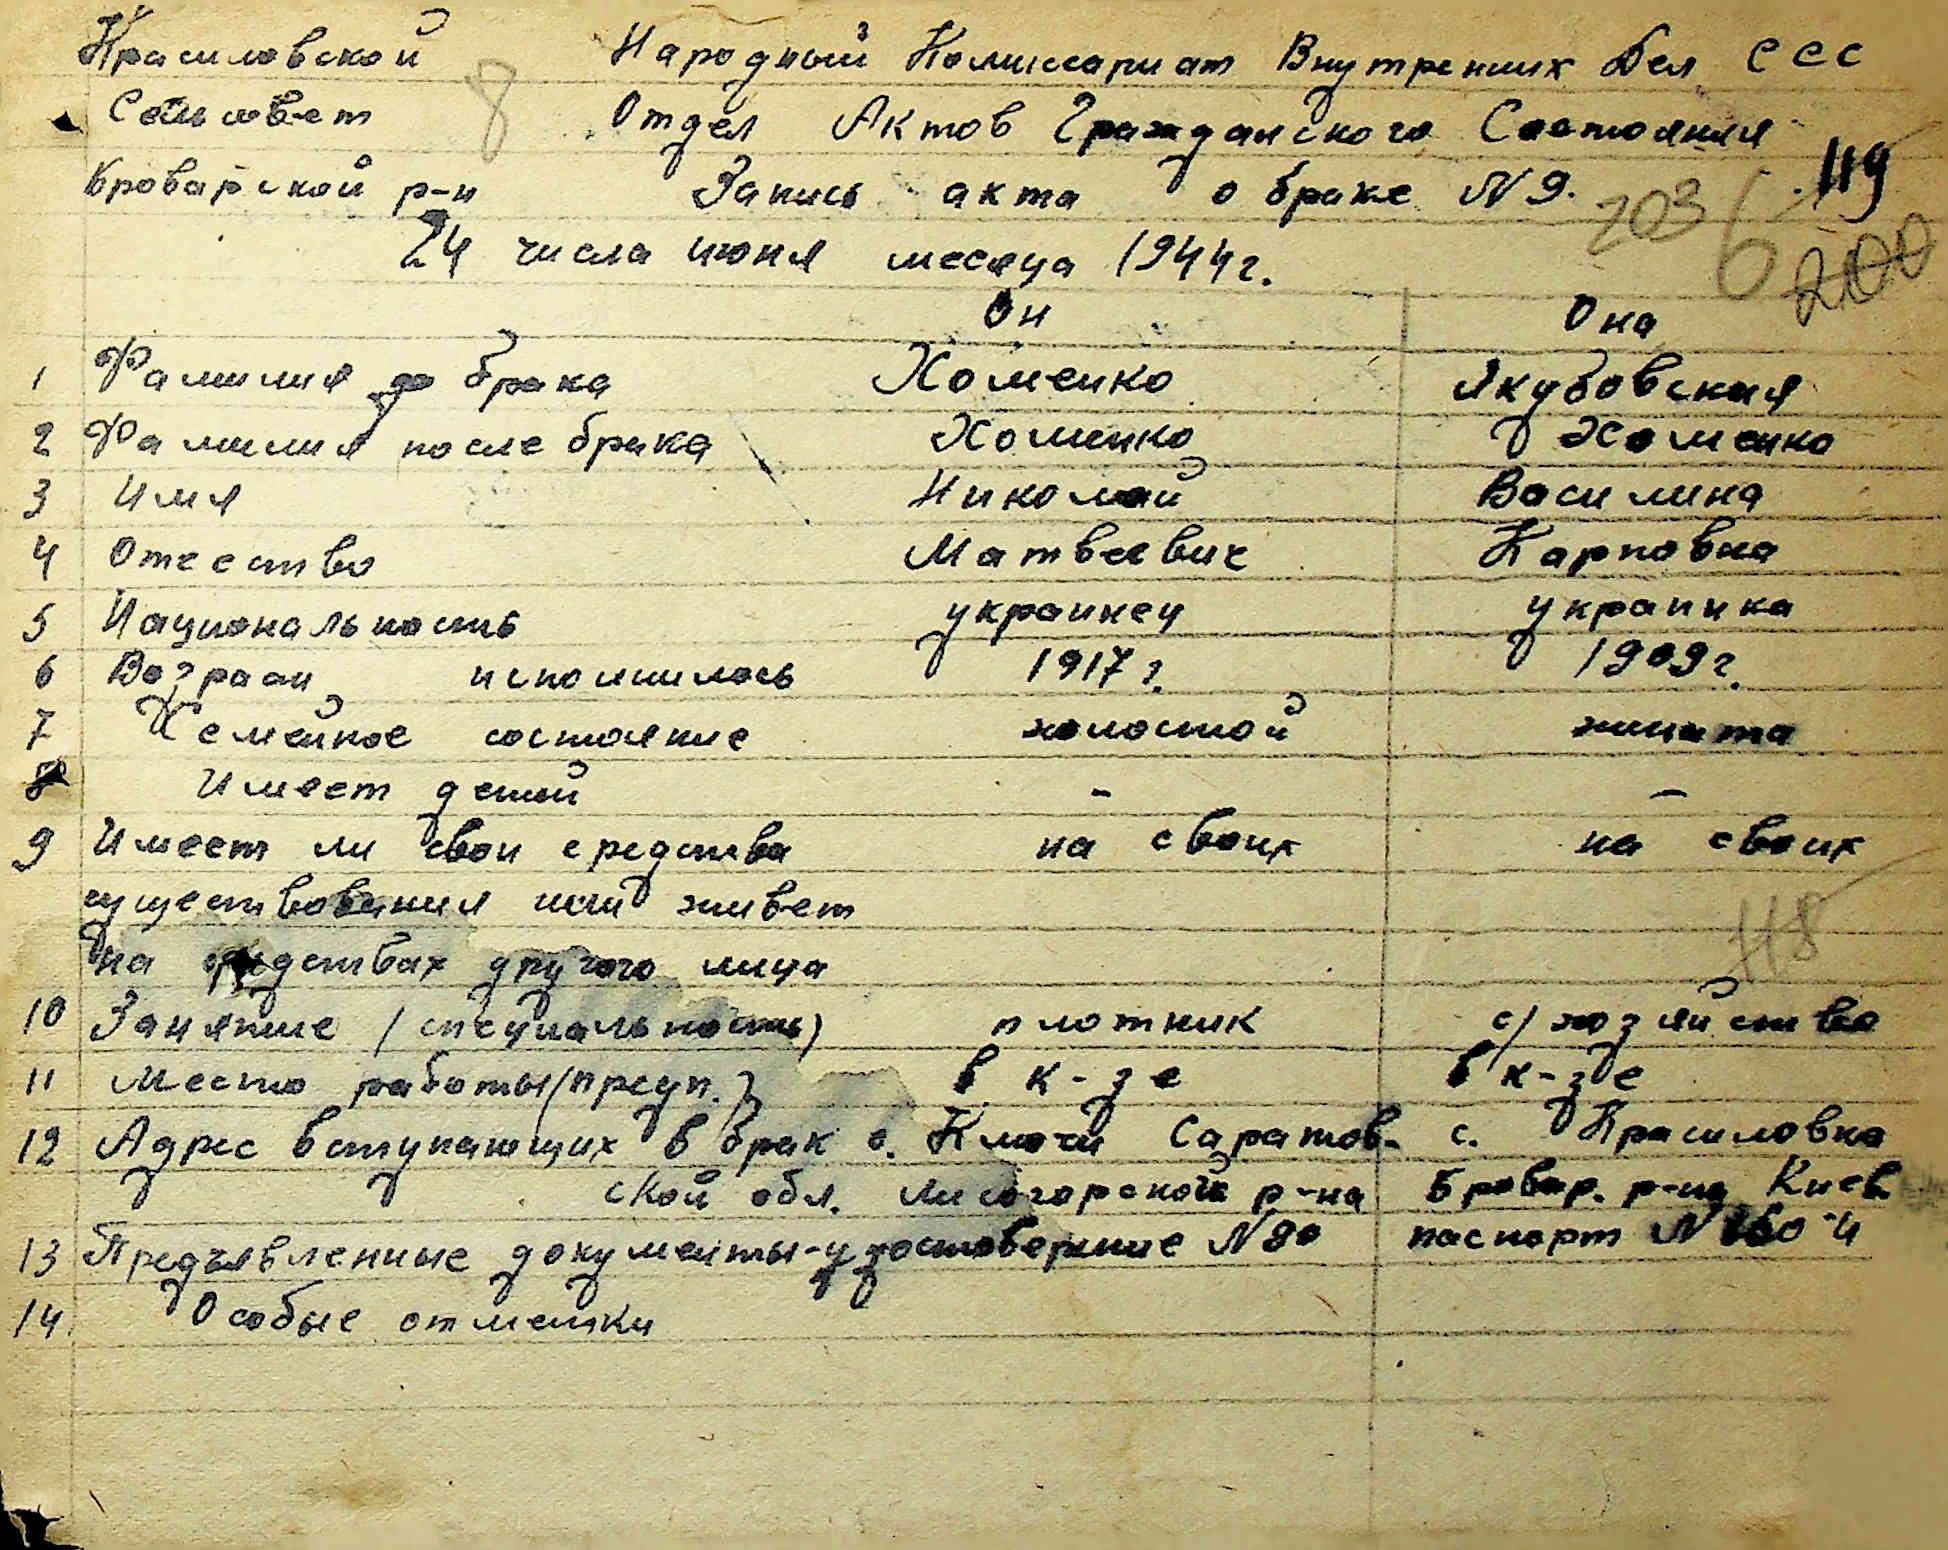 Красиловской Народный Комиссариат Внутренних Дел ССС
8
Сельсовет Отдел Актов Гражданского Состояния
Броварской р-н Запись акта о браке N 9. 119
203 6 200
24 числа июня месяца 1944 г.
Он Она
1 Фамилия до брака Хоменко Якубовская
2 Фамилия после брака Хоменко Хоменко
3 Имя Николай Василина
4 Отчество Матвеевич Карповна
5 Национальность украинец украинка
6 Возраст исполнилось 1917 г. 1909 г.
7 Семейное состояние холостой жината
8 Имеет детей - -
9 Имеет ли свои средства на своих на своих
существования или живет
118
на средствах другого лица
10 Занятие (специальность) плотник с/хозяйство
11 Место работы (предп.) в к-зе в к-зе
12 Адрес вступающих в брак с. Ключи Саратов- с. Красиловка
ской обл. Лисогорской р-на Бровар. р-на Киев.
13 Предъявленные документы-удостоверение N 80 паспорт N
14 Особые отметки